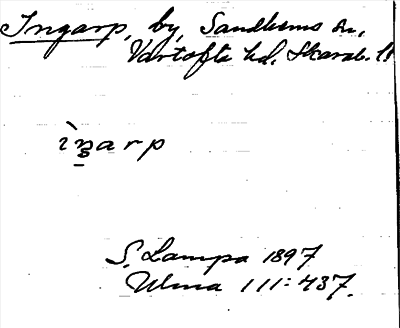 Ingarp, by, Sandhems sn,
Vartofta hd, Skarab. l.
ìŋarp
S. Lampa 1897
Ulma 111:437.